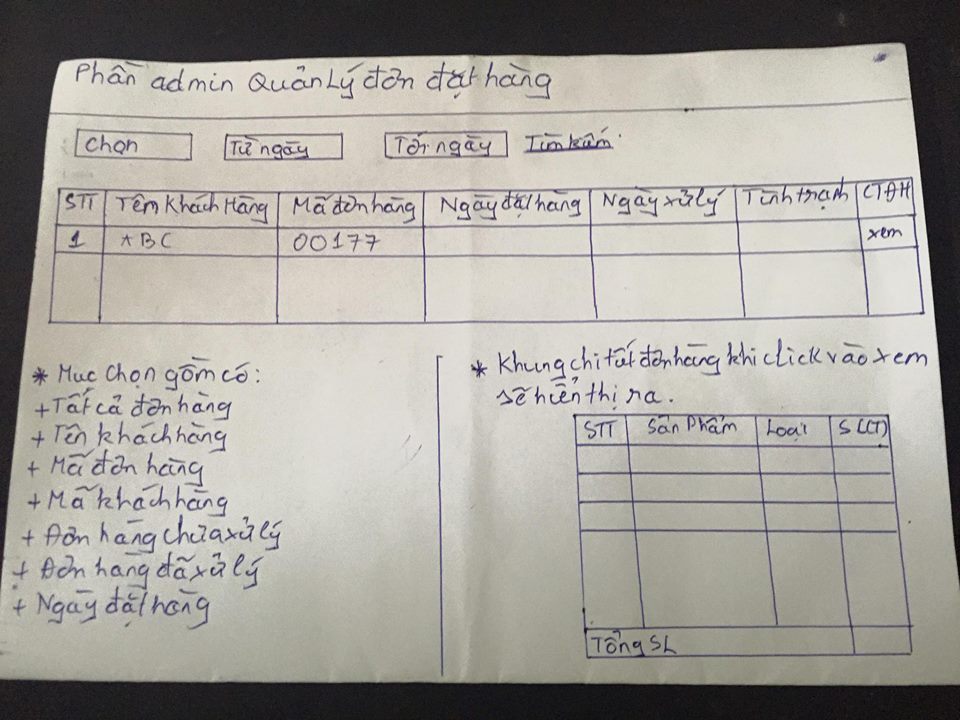 Phần admin Quản Lý đơn đặt hàng
Chọn Từ ngày Tới ngày Tìm kiếm
STT Tên Khách Hàng Mã đơn hàng Ngày đặt hàng Ngày xử lý Tình trạm CTĐH
1 ABC 00177 xem
* Mục chọn gồm có:
+ Tất cả đơn hàng
+ Tên khách hàng
+ Mã đơn hàng
+ Mã khách hàng
+ Đơn hàng chưa xử lý
+ Đơn hàng đã xử lý
+ Ngày đặt hàng
* Khung chi tiết đơn hàng khi click vào xem
sẽ hiển thị ra.
STT Sản Phẩm Loại SL(T)
Tổng SL